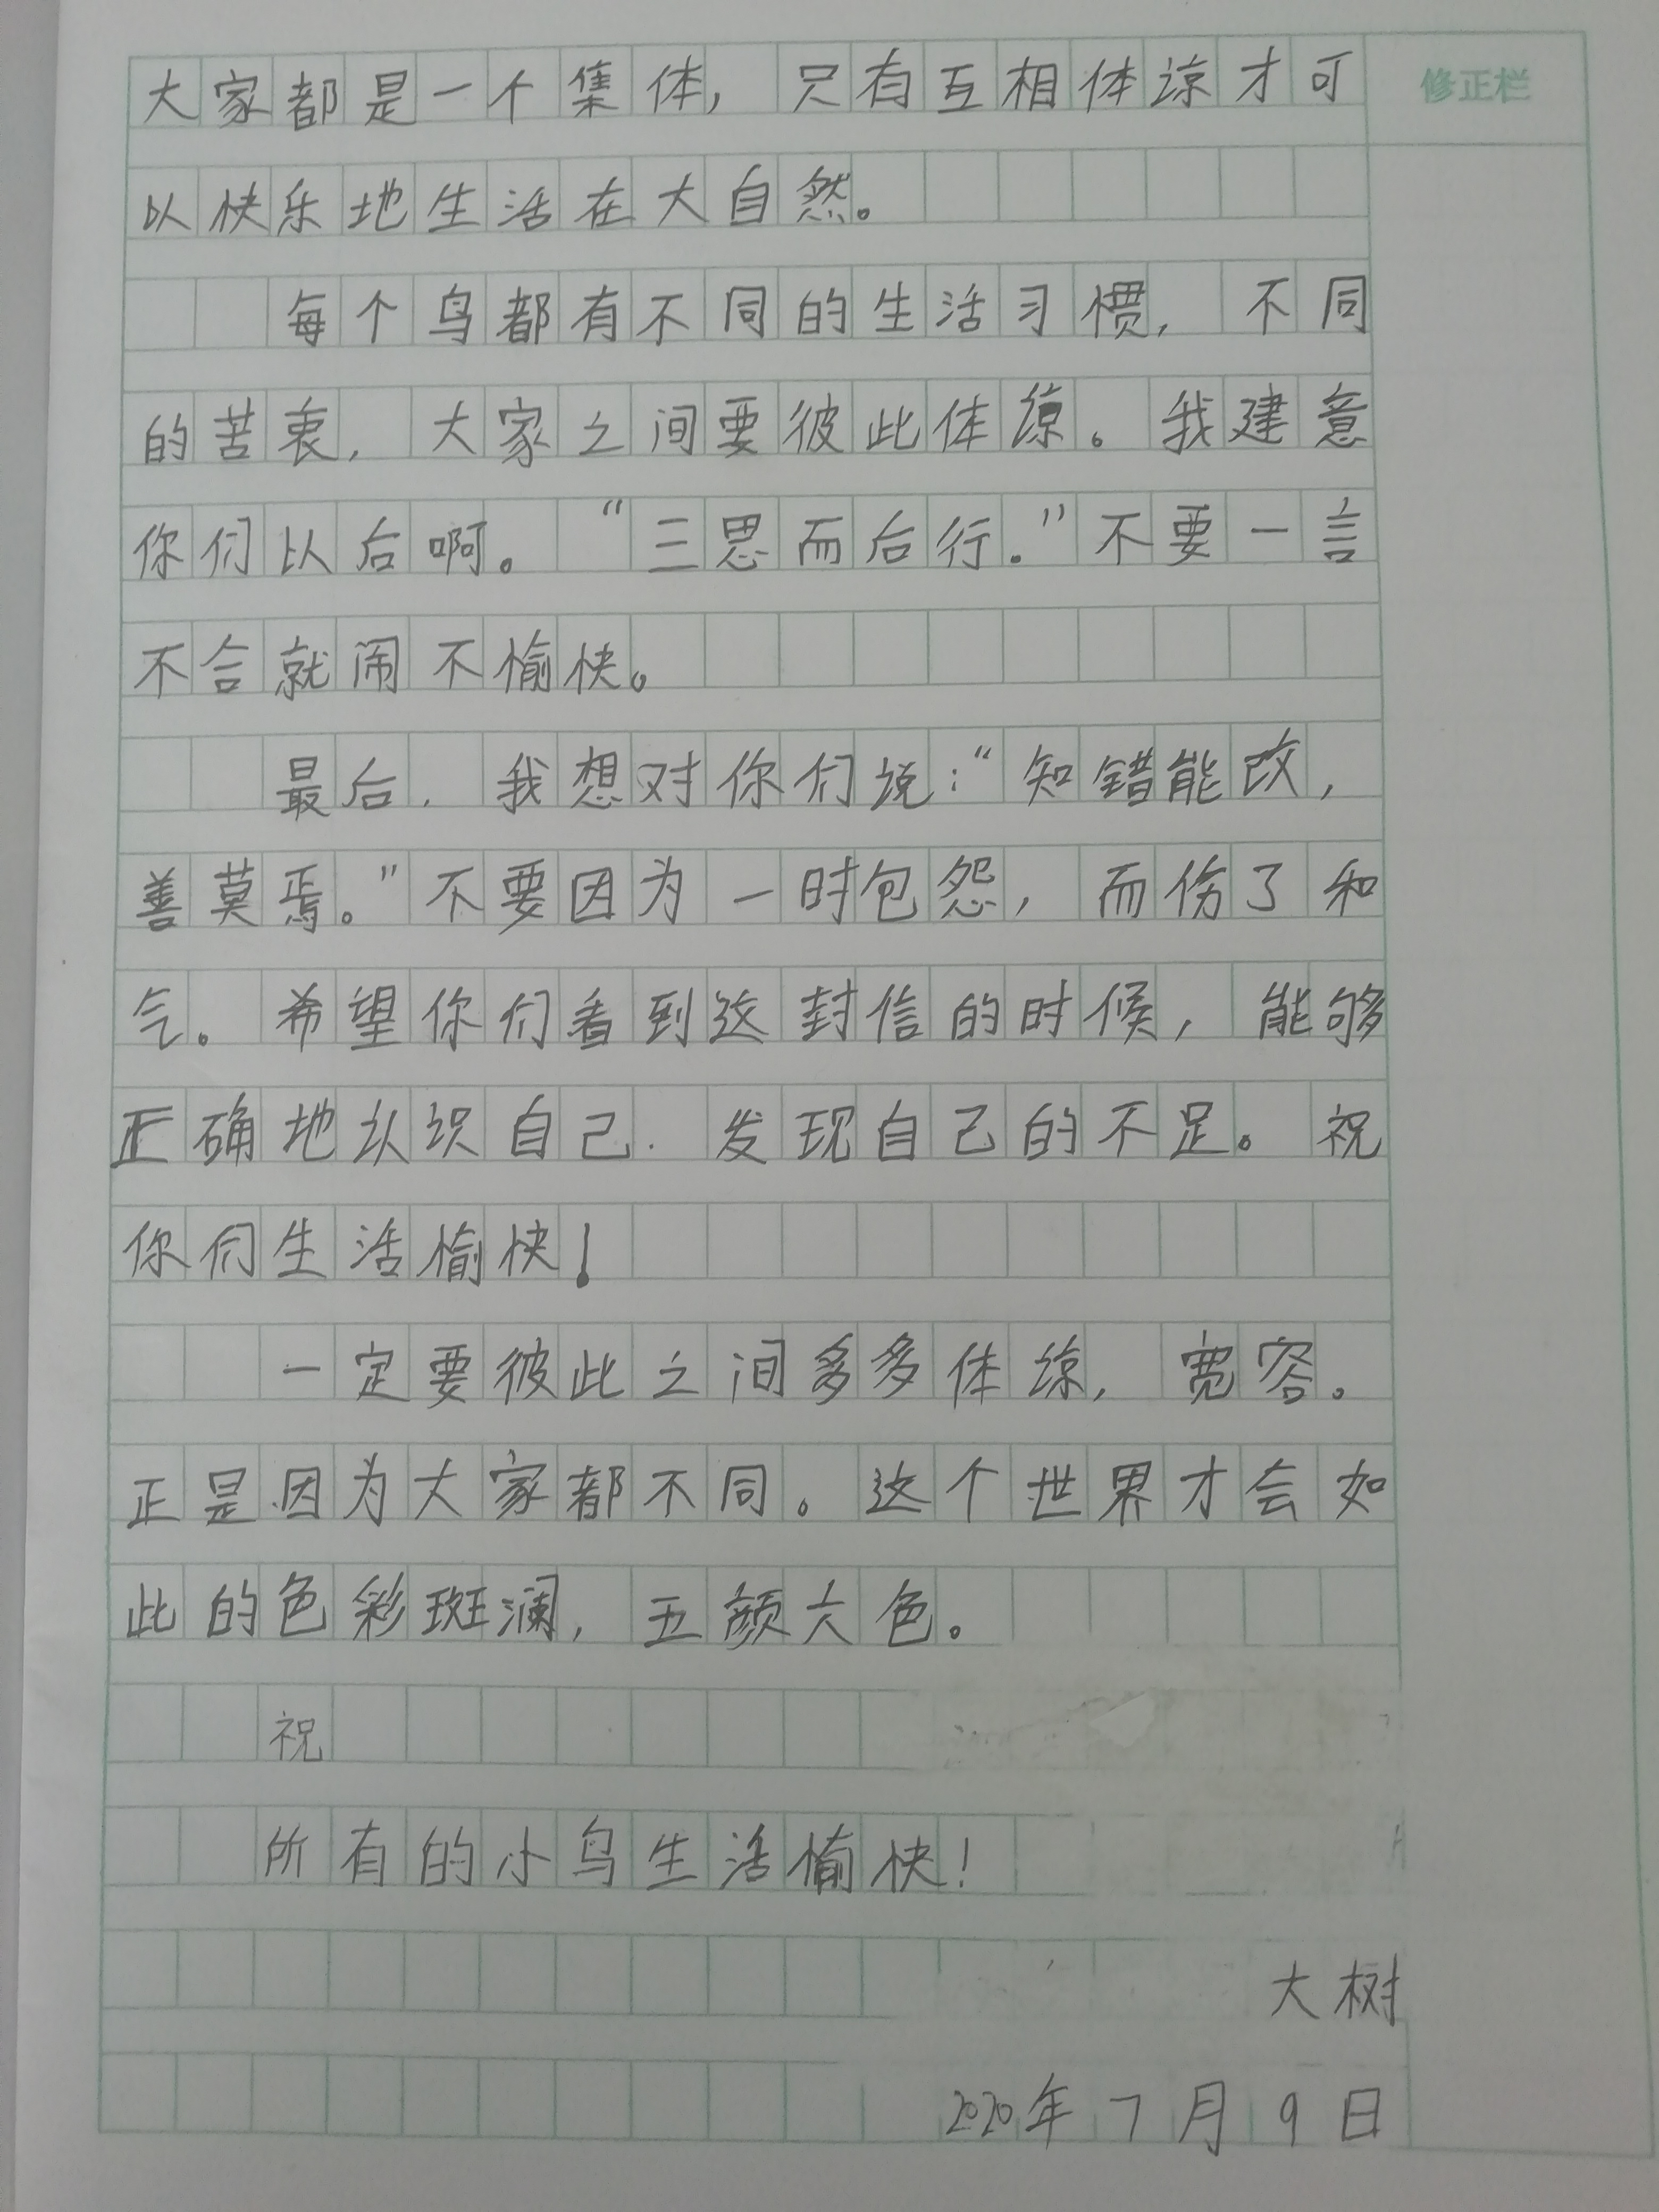 大家都是一个集体，只有互相体谅才可
修正栏
以快乐地生活在大自然。
每个鸟都有不同的生活习惯，不同
的苦衷，大家之间要彼此体谅。我建意
你们以后啊。“三思而后行.”不要一言
不合就闹不愉快。
最后，我想对你们说：“知错能改，
善莫焉。”不要因为一时包怨，而伤了和
气。希望你们看到这封信的时候，能够
正确地认识自己.发现自己的不足。祝
你们生活愉快！
一定要彼此之间多多体谅，宽容。
正是因为大家都不同。这个世界才会如
此的色彩斑澜，五颜六色。
祝
所有的小鸟生活愉快！
大树
2020年7月9日